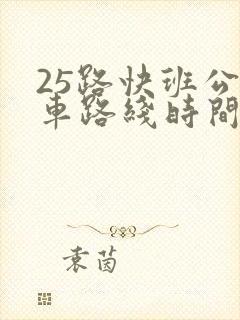 25路快班公
車路綫時間
袁茵